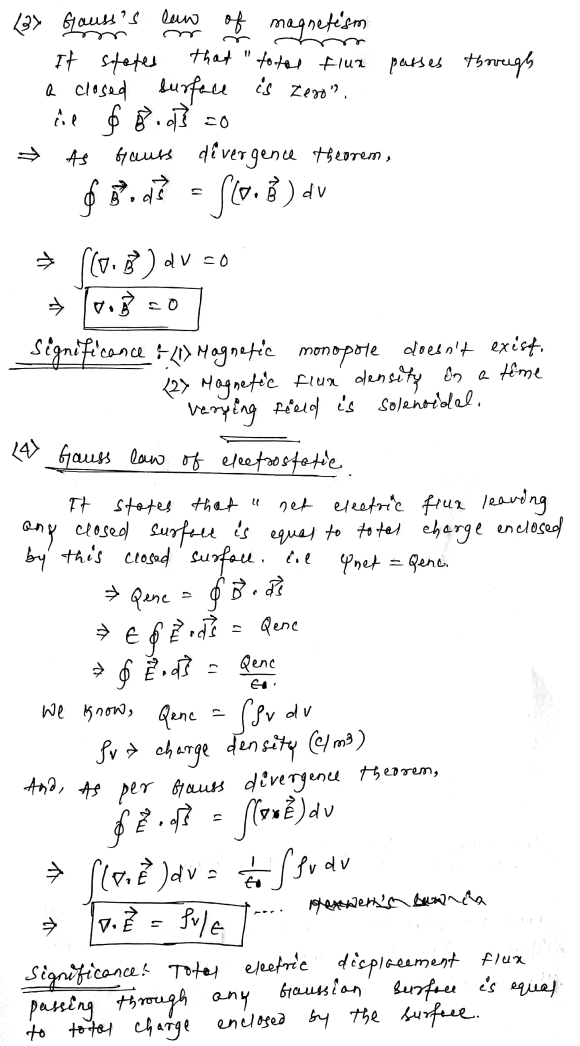 (3) Gauss's law of magnetism
It states that "total flux passes through
a closed surface is zero".
i.e ∮ B⃗ . ds⃗ = 0
⇒ As Gauss divergence theorem,
∮ B⃗ . ds⃗ = ∫(∇. B⃗) dv
⇒ ∫(∇. B⃗) dv = 0
⇒ ∇. B⃗ = 0
Significance :- (1) Magnetic monopole doesn't exist.
(2) Magnetic flux density in a time
varying field is solenoidal.
(4) Gauss law of electrostatic
It states that " net electric flux leaving
any closed surface is equal to total charge enclosed
by this closed surface. i.e φnet = Qenc.
⇒ Qenc = ∮ D⃗ . ds⃗
⇒ ϵ ∮ E⃗ . ds⃗ = Qenc
⇒ ∮ E⃗ . ds⃗ = Qenc/ϵ0.
We know, Qenc = ∫ρv dv
ρv → charge density (C/m³)
And, As per Gauss divergence theorem,
∮ E⃗ . ds⃗ = ∫(∇×E⃗) dv
⇒ ∫(∇. E⃗) dv = 1/ϵ0 ∫ρv dv
⇒ ∇. E⃗ = ρv/ϵ ....
Significance: Total electric displacement flux
passing through any Gaussian surface is equal
to total charge enclosed by the surface.